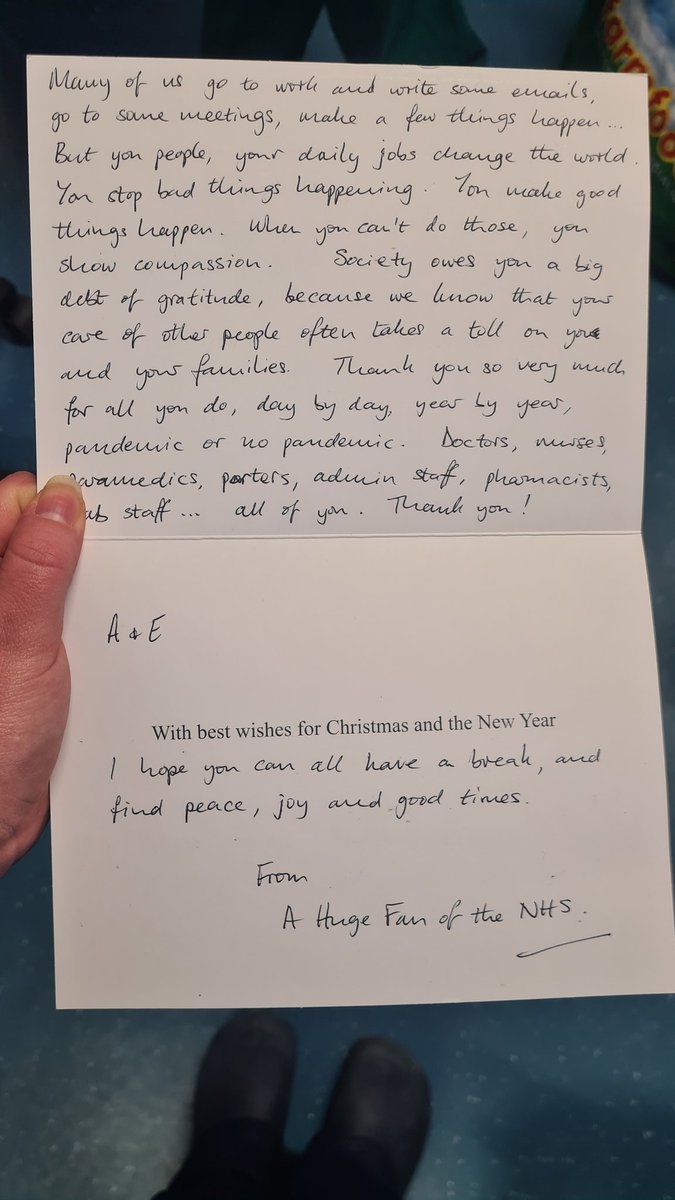 Many of us go to work and write some emails,
go to some meetings, make a few things happen...
But you people, your daily jobs change the world.
You stop bad things happening. You make good
things happen. When you can't do those, you
show compassion. Society owes you a big
debt of gratitude, because we know that your
care of other people often takes a toll on you
and your families. Thank you so very much
for all you do, day by day, year by year,
pandemic or no pandemic. Doctors, nurses,
paramedics, porters, admin staff, pharmacists,
lab staff... all of you. Thank you!
A & E
With best wishes for Christmas and the New Year
I hope you can all have a break, and
find peace, joy and good times.
From
A Huge Fan of the NHS.